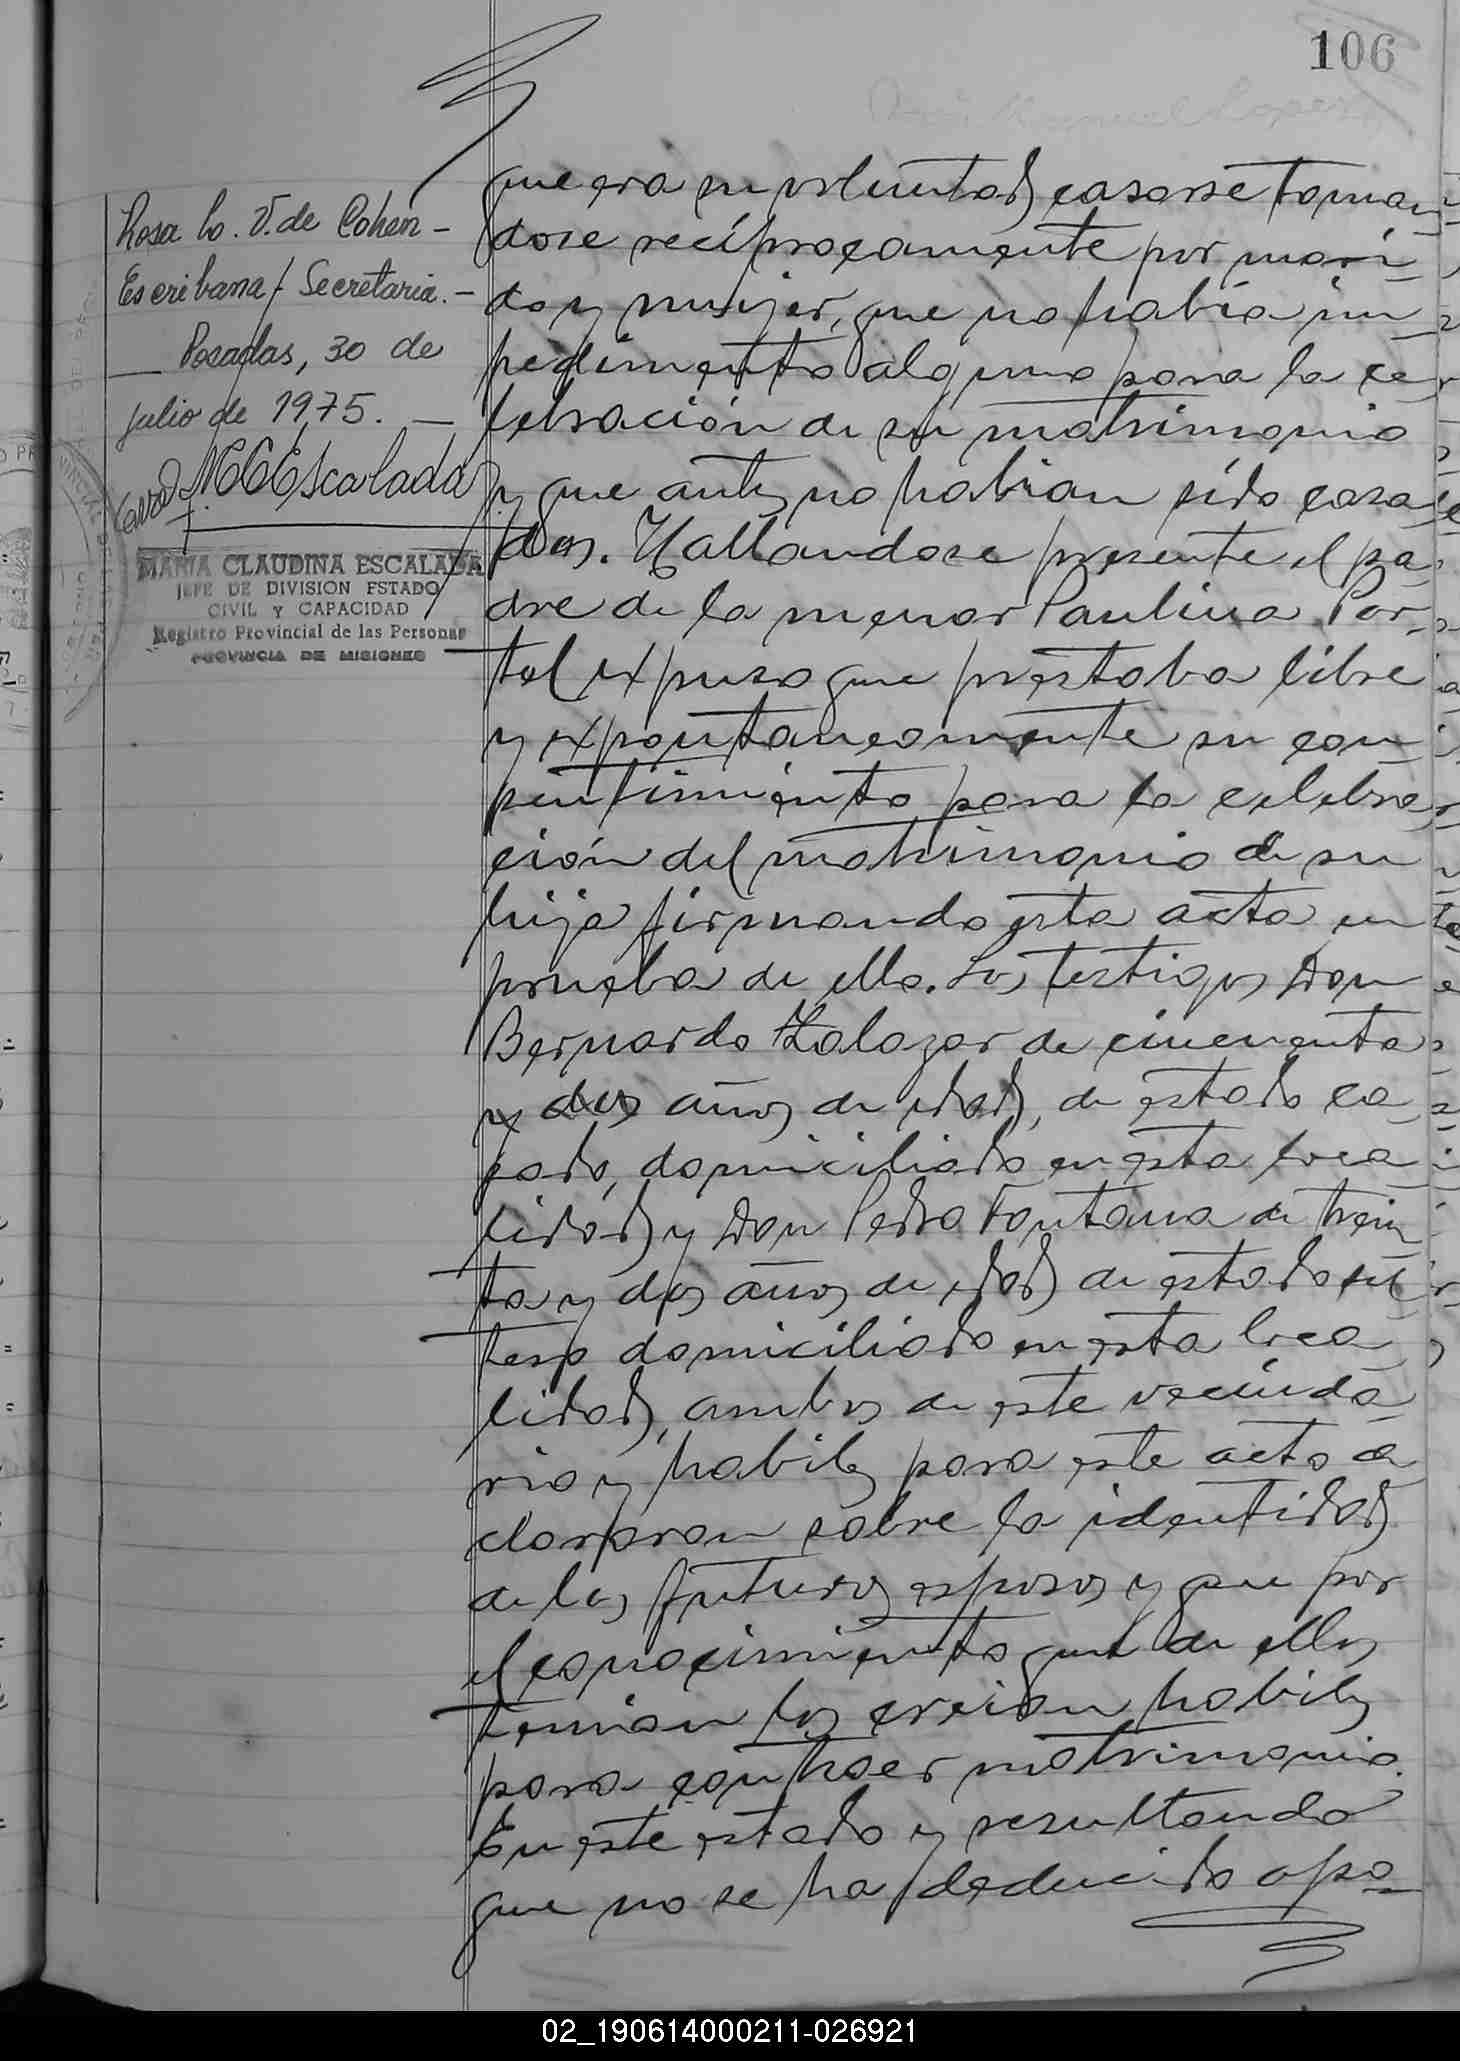 106
Rosa Co. V. de Cohen -
Escribana / Secretaria. -
Posadas, 30 de
julio de 1975. -
MCEscalada
MARIA CLAUDINA ESCALADA
JEFE DE DIVISION ESTADO
CIVIL Y CAPACIDAD
Registro Provincial de las Personas
PROVINCIA DE MISIONES
que era su voluntad casarse toman
dose recíprocamente por mari-
do y mujer, que no habia im
pedimento alguno para la ce
lebración de su matrimonio
y que antes no habian sido casa
dos. Hallandose presente el pa-
dre de la menor Paulina Por-
tel expuso que prestaba libre
y expontaneamente su con
sentimiento para la celebra
ción del matrimonio de su
hija firmando esta acta en
prueba de ello. Los testigos Don
Bernardo Zalazar de cincuenta
y dos años de edad, de estado ca
sado, domiciliado en esta loca
lidad y Don Pedro Fontana de trein
ta y dos años de edad de estado sol
tero domiciliado en esta loca
lidad, ambos de este vecinda
rio y habiles para este acto de
clararon sobre la identidad
de los futuros esposos y que por
el conocimiento que de ellos
tenian los creian habiles
para contraer matrimonio.
En este estado y resultando
que no se ha deducido opo-
02_190614000211-026921